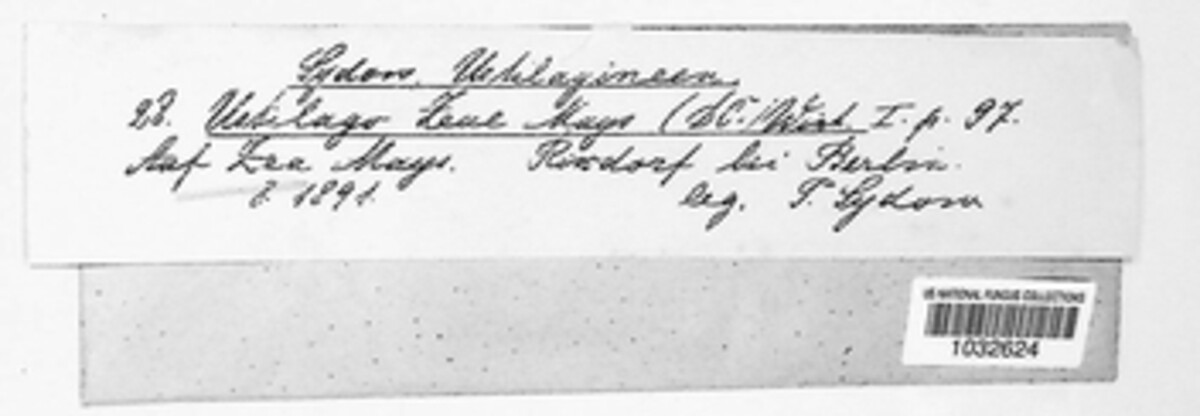 Sydow, Ustilagineen.
28. Ustilago Zeae Mays (DC.) Wint. I. p. 97.
Auf Zea Mays. Rixdorf bei Berlin.
8. 1891. leg. P. Sydow
US NATIONAL FUNGUS COLLECTIONS
1032624